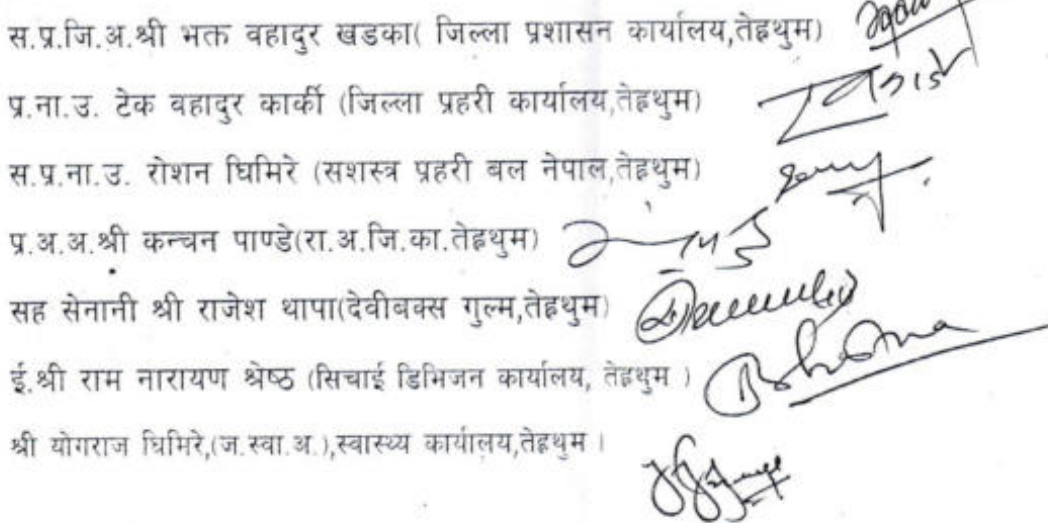 स.प्र.जि.अ.श्री भक्त वहादुर खडका( जिल्ला प्रशासन कार्यालय,तेह्रथुम)
प्र.ना.उ. टेक वहादुर कार्की (जिल्ला प्रहरी कार्यालय,तेह्रथुम)
स.प्र.ना.उ. रोशन घिमिरे (सशस्त्र प्रहरी बल नेपाल,तेह्रथुम)
प्र.अ.अ.श्री कन्चन पाण्डे(रा.अ.जि.का.तेह्रथुम)
सह सेनानी श्री राजेश थापा(देवीबक्स गुल्म,तेह्रथुम)
ई.श्री राम नारायण श्रेष्ठ (सिचाई डिभिजन कार्यालय, तेह्रथुम )
श्री योगराज घिमिरे,(ज.स्वा.अ.),स्वास्थ्य कार्यालय,तेह्रथुम ।